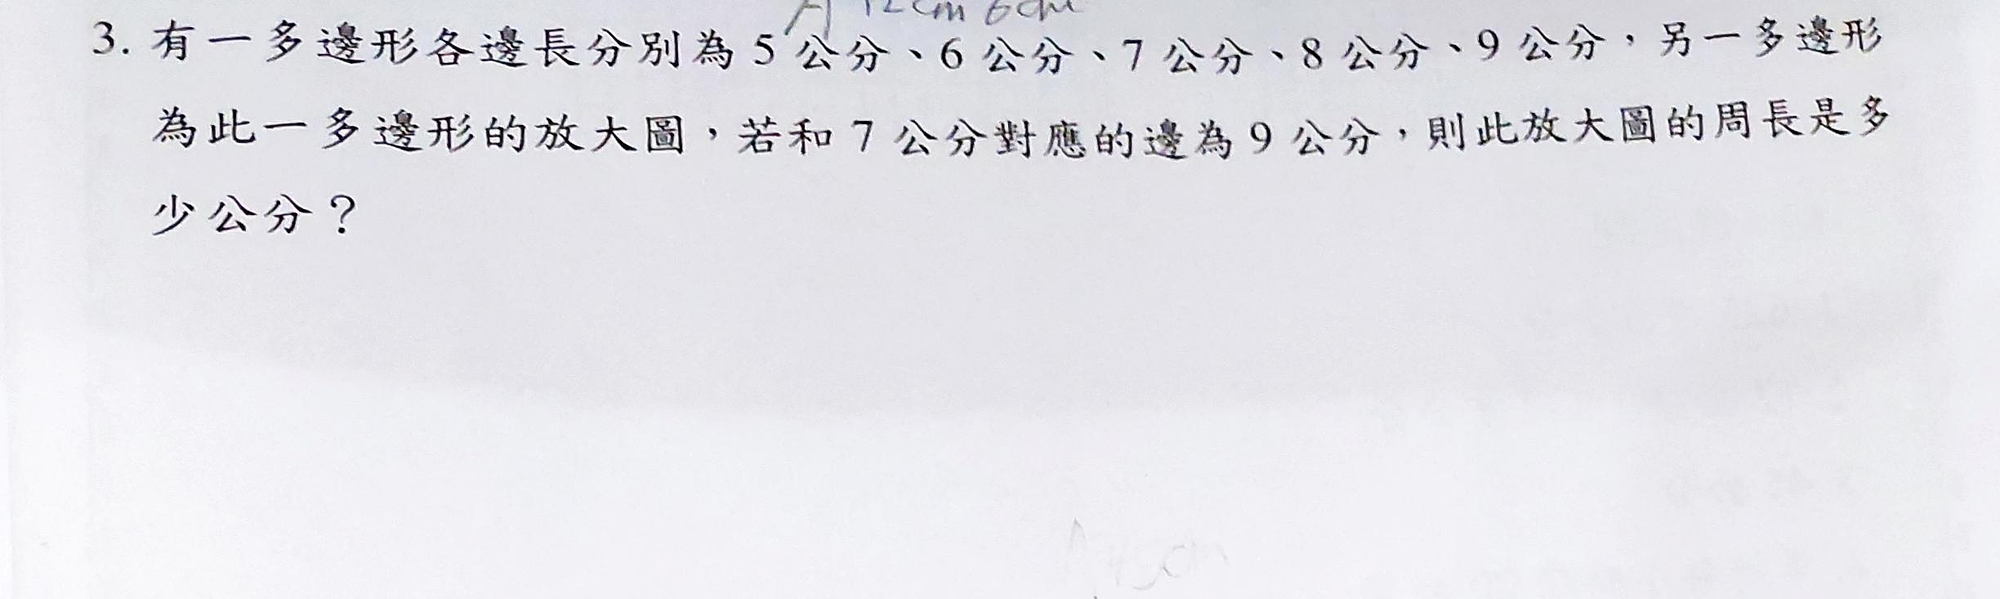 12cm 6cm
3. 有一多邊形各邊長分別為5公分、6公分、7公分、8公分、9公分，另一多邊形
為此一多邊形的放大圖，若和7公分對應的邊為9公分，則此放大圖的周長是多
少公分？